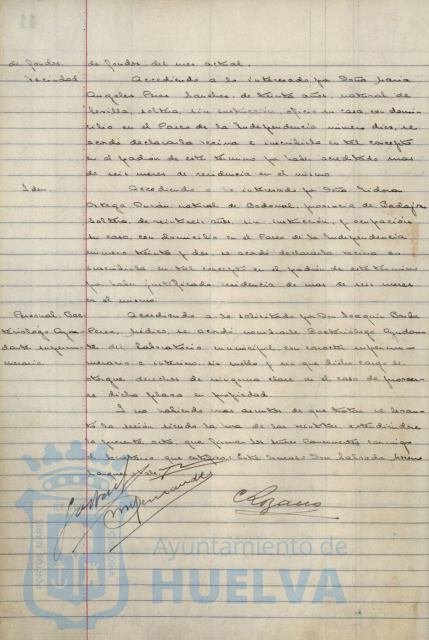 de fondos de fondos del mes actual.
Vecindad Accediendo a lo interesado por Doña Maria
Angeles Perez Sanchez, de treinta años, natural de
Sevilla, soltera, sin instrucción, oficio su casa, con domi-
cilio en el Paseo de la Independencia número diez, se
acordó declararla vecina e inscribirla en tal concepto
en el padrón de este término por haber acreditado mas
de seis meses de residencia en el mismo.
Idem. Accediendo a lo interesado por Doña Isidora
Ortega Durán natural de Bodonal, provincia de Badajoz
soltera, de años, sin instrucción, y ocupación
su casa, con domicilio en el Paseo de la Independencia
número treinta y dos, se acordó declararla vecina e
inscribirla en tal concepto en el padrón de este término
por haber justificado residencia de mas de seis meses
en el mismo.
Personal. Bac- Accediendo a lo solicitado por Don Joaquin
teriólogo Ayu- Perez, Médico, se acordó nombrarle Bacteriólogo Ayudan-
dante supernu- te del laboratorio municipal con caracter supernu-
merario. merario e interino, sin sueldo y sin que dicho cargo le
otorgue derechos de ninguna clase en el caso de proveer-
se dicha plaza en propiedad.
Y no habiendo mas asuntos de que tratar se levantó
la sesión siendo la una de las extendiendose
la presente acta, que firman los Señores Concurrentes conmigo
el Secretario que certifico:
C Lozano
PORTUS MARIS
Ayuntamiento de
HUELVA